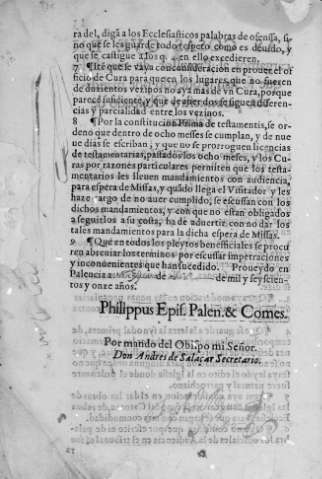 ra del, digã a los Ecclesiasticos palabras de ofensa, si
no que se les guarde todo respeto como es deuido, y
que se castigue a los q en ello excedieren.
7 ¶ Itẽ que se vaya con consideración en proueer el of
ficio de Cura para que en los lugares, que no fueren
de duzientos vezinos no aya mas de vn Cura, porque
parece suficiente, y que de auer dos se sigue a diferen-
cias y parcialidad entre los vezinos.
8 ¶ Por la constitucion Prima de testamentis, se or-
deno que dentro de ocho messes se cumplan, y de nue
ue dias se escriban, y que no se prorroguen licencias
de testamentarias, passados los ocho meses, y los Cu
ras por razones particulares permiten que los testa-
mentarios les lleuen mandamientos con audiencia,
para espera de Missas, y quãdo llega el Visitador y les
haze cargo de no auer cumplido, se escussan con los
dichos mandamientos, y con que no estan obligados
a seguillos a su costa, ha de aduertir con no dar los
tales mandamientos para la dicha espera de Missas.
9 ¶ Que en todos los pleytos beneficiales se procu
ren abreuiar los terminos por escussar impetraciones
y inconuenientes que han sucedido. Proueydo en
Palencia a de de mil y seyscien-
tos y onze años.
Philippus Epis. Palen. & Comes.
Por mando del Obispo mi Señor.
Don Andres de Salaçar Secretario.